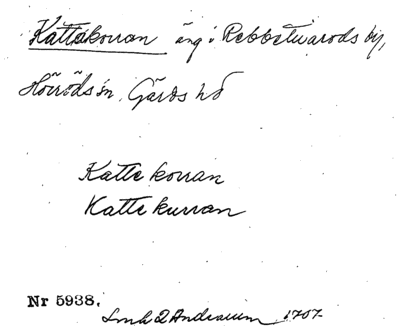 Kattakorran äng i Rebbetuarods by,
Hörröds sn. Gärds hd
Katte korran
Katte kurran
Nr 5938.
Lmh 2 Andrarum 1707